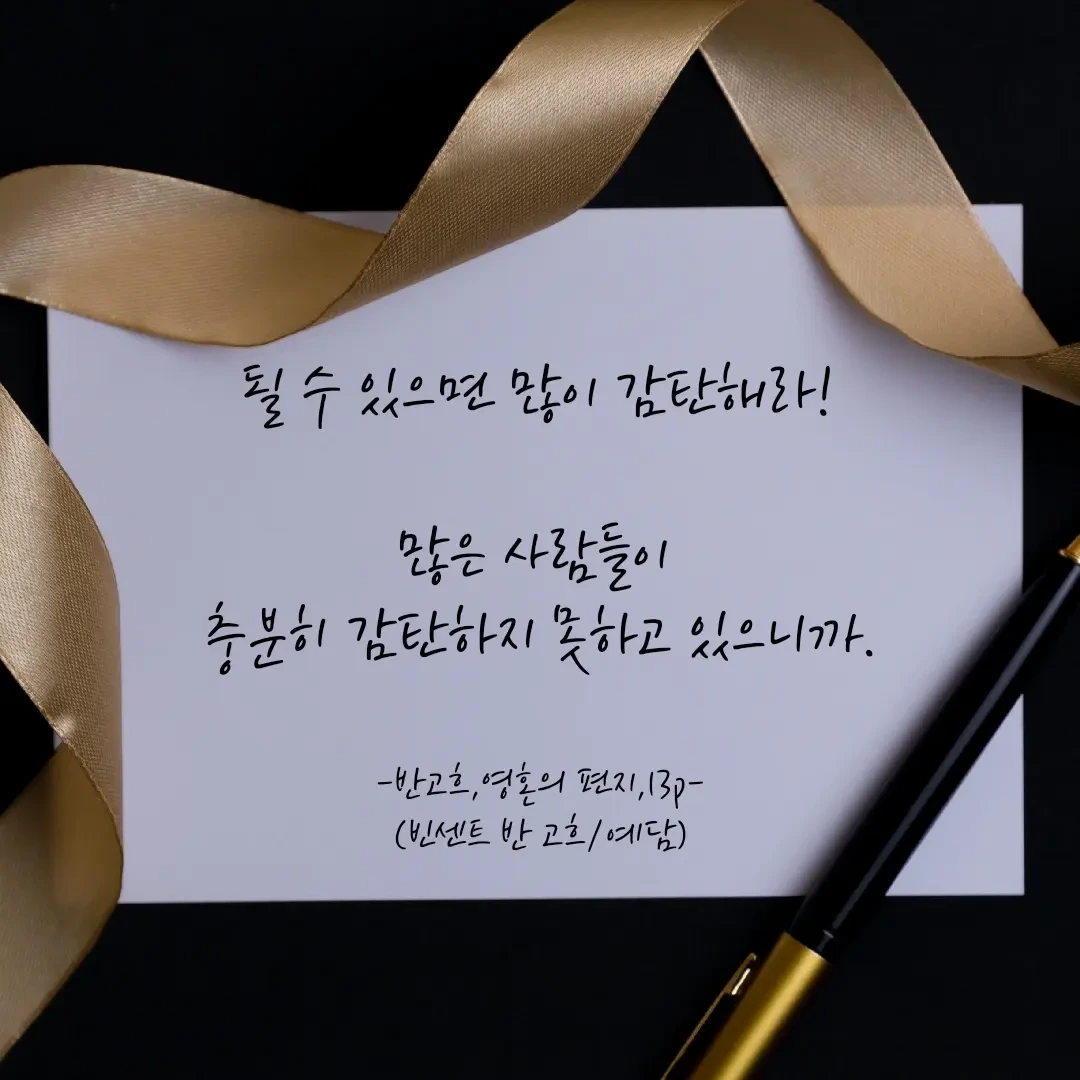 될 수 있으면 많이 감탄해라!
많은 사람들이
충분히 감탄하지 못하고 있으니까.
-반고흐,영혼의 편지,13p-
(빈센트 반 고흐/예담)